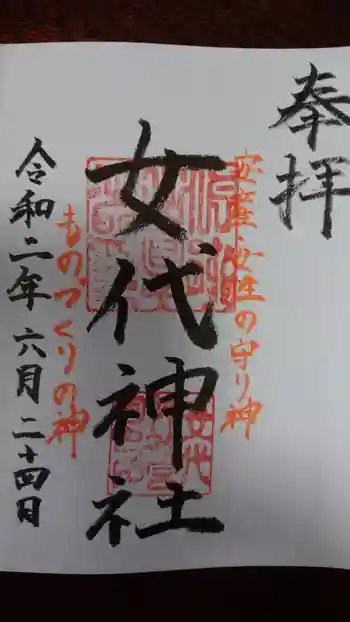 奉拝
安産 女性の守り神
女代神社
ものづくりの神
令和二年 六月 二十四日